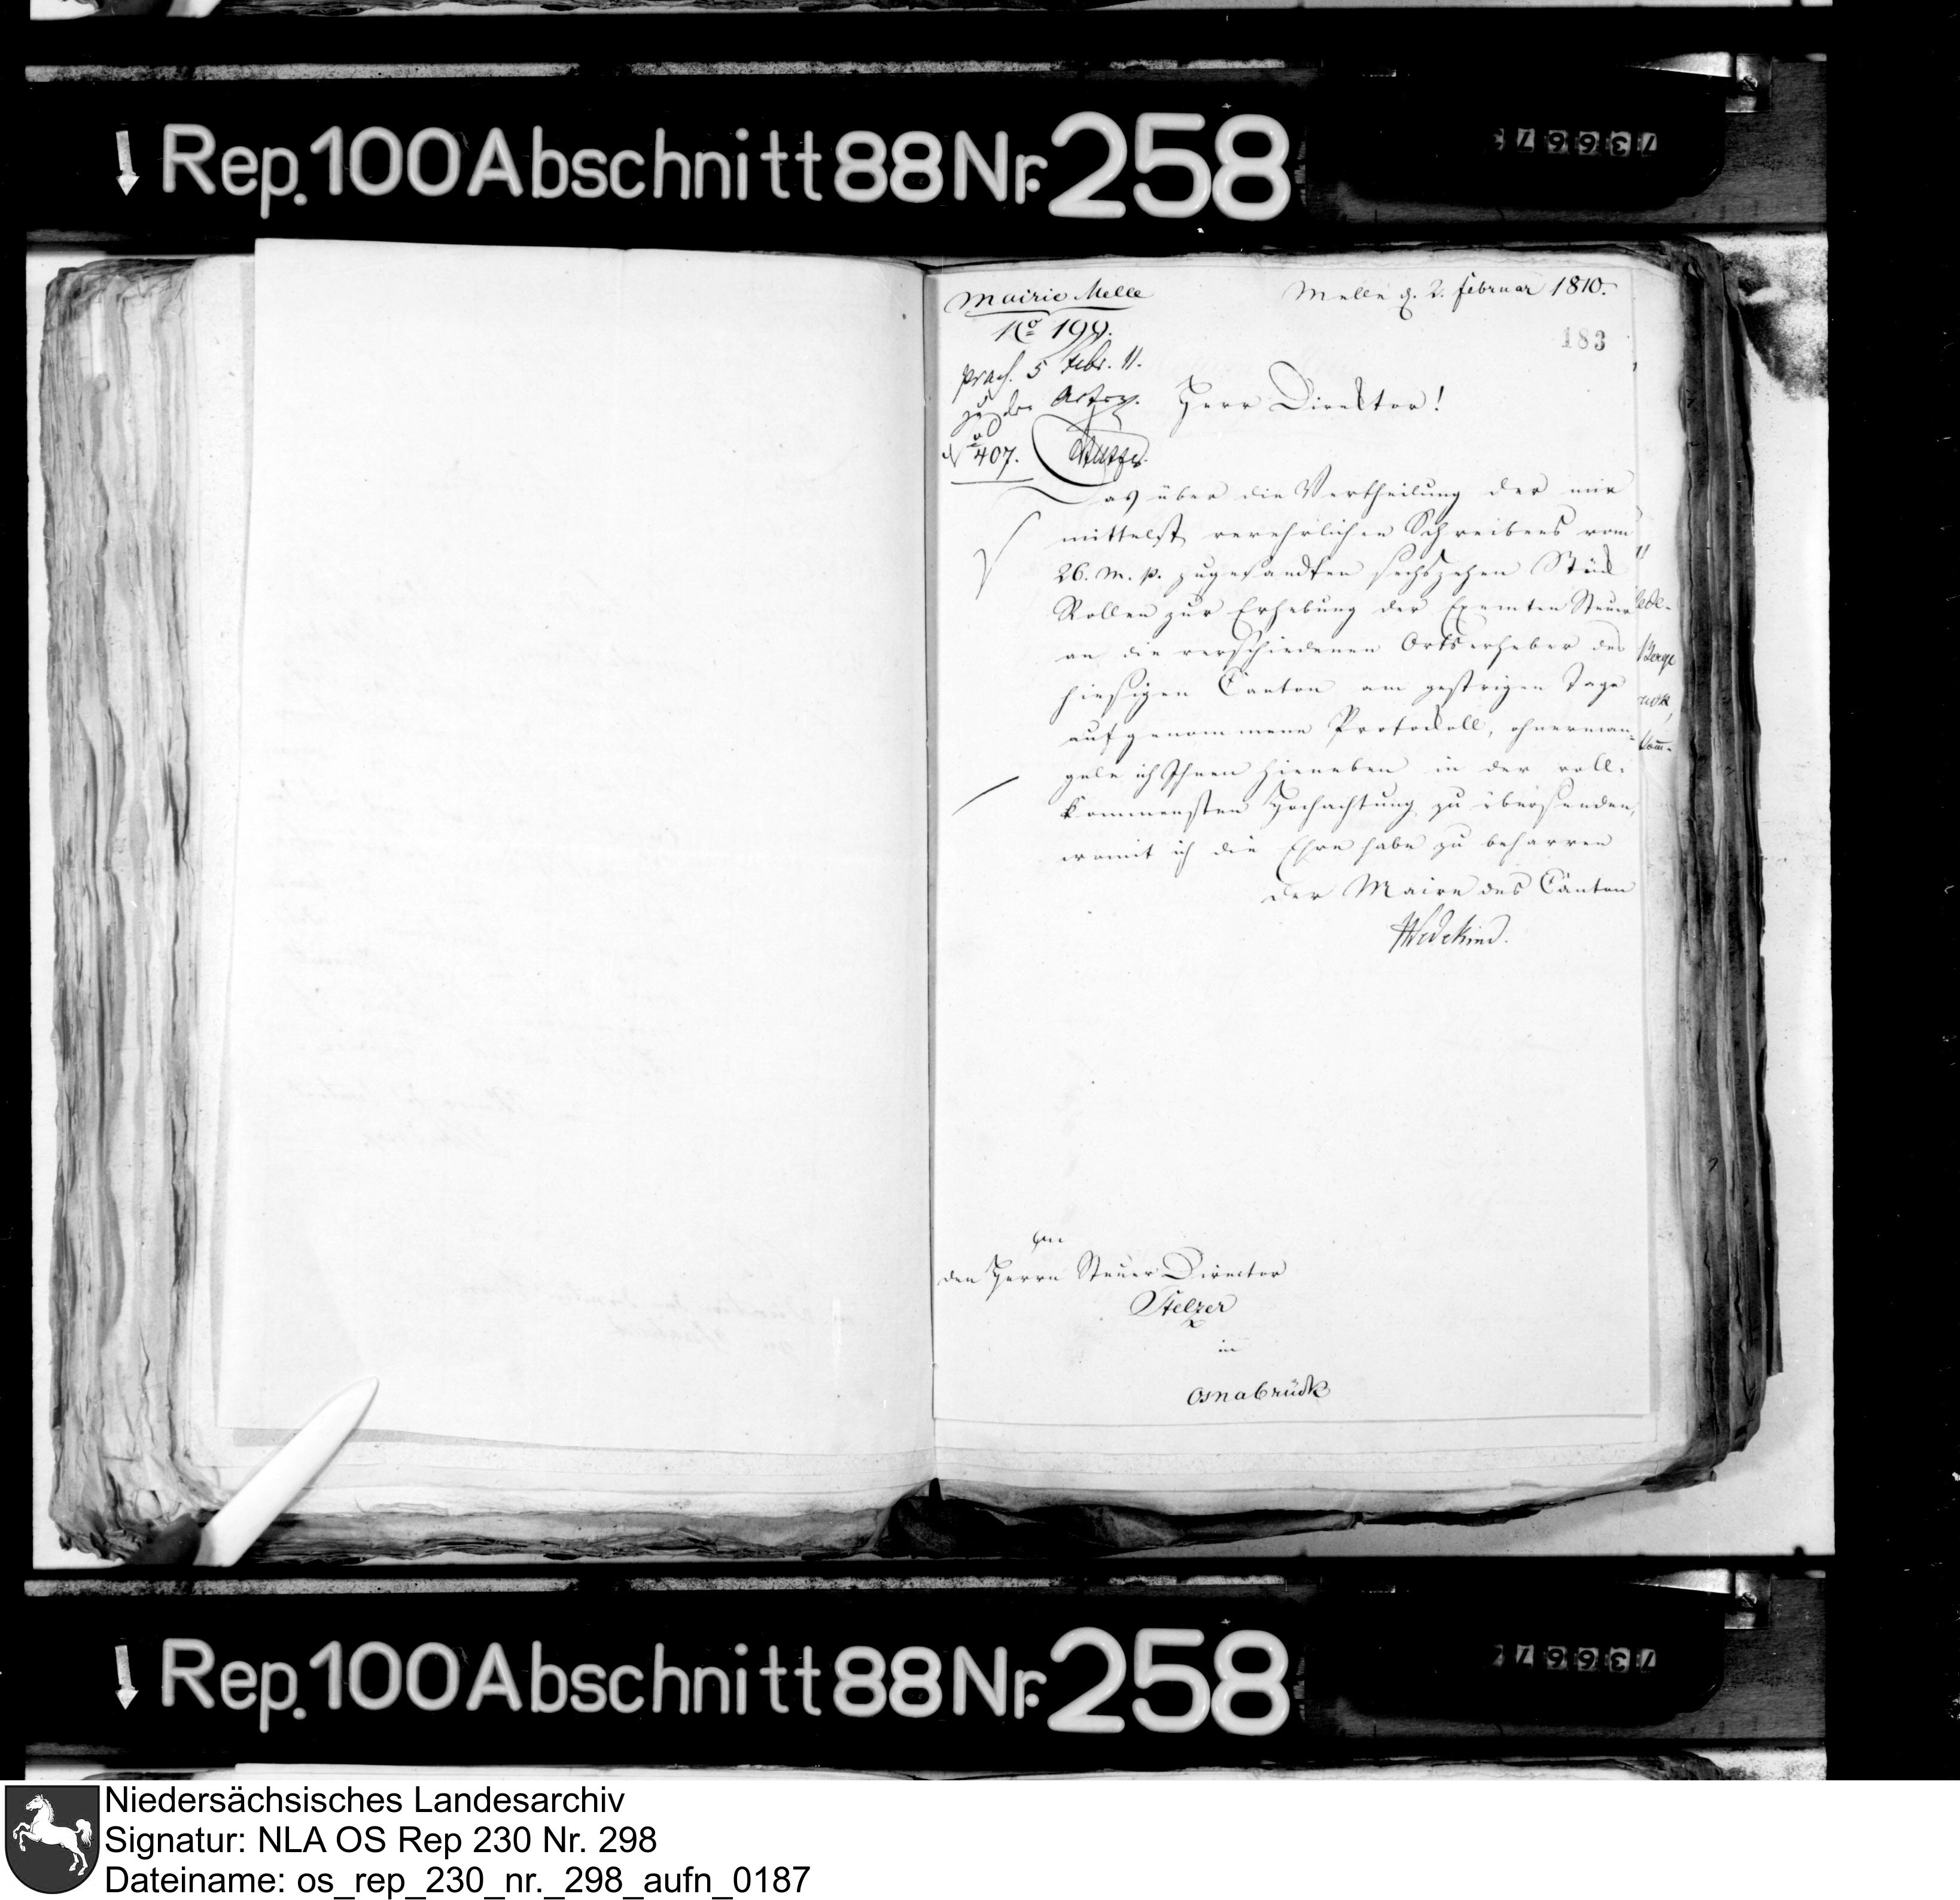 Rep. 100 Abschnitt 88 Nr. 258
Mairie Melle
No 199.
Melle d. 2. Februar 1810.
183
praes. 5 Febr. 11.
zu den
No 407.
Herr Direktor!
Das über die Vertheilung der mir
mittelst verehrlichen Schreibens vom
26. m. p. zugesandten sechszehen Stück
Rollen zur Erhebung der Exemten Steuer
an die verschiedenen Ortserheber des
hiesigen Canton am gestrigen Tage
aufgenommene Protockoll, ohnerman-
gele ich Ihnen hieneben in der voll-
kommensten Hochachtung zu übersenden,
womit ich die Ehre habe zu beharren
Der Maire des Canton
Wedekind.
An
den Herrn Steuer Director
Stelzer
in
Osnabrück
Rep. 100 Abschnitt 88 Nr. 258
Niedersächsisches Landesarchiv
Signatur: NLA OS Rep 230 Nr. 298
Dateiname: os_rep_230_nr._298_aufn_0187